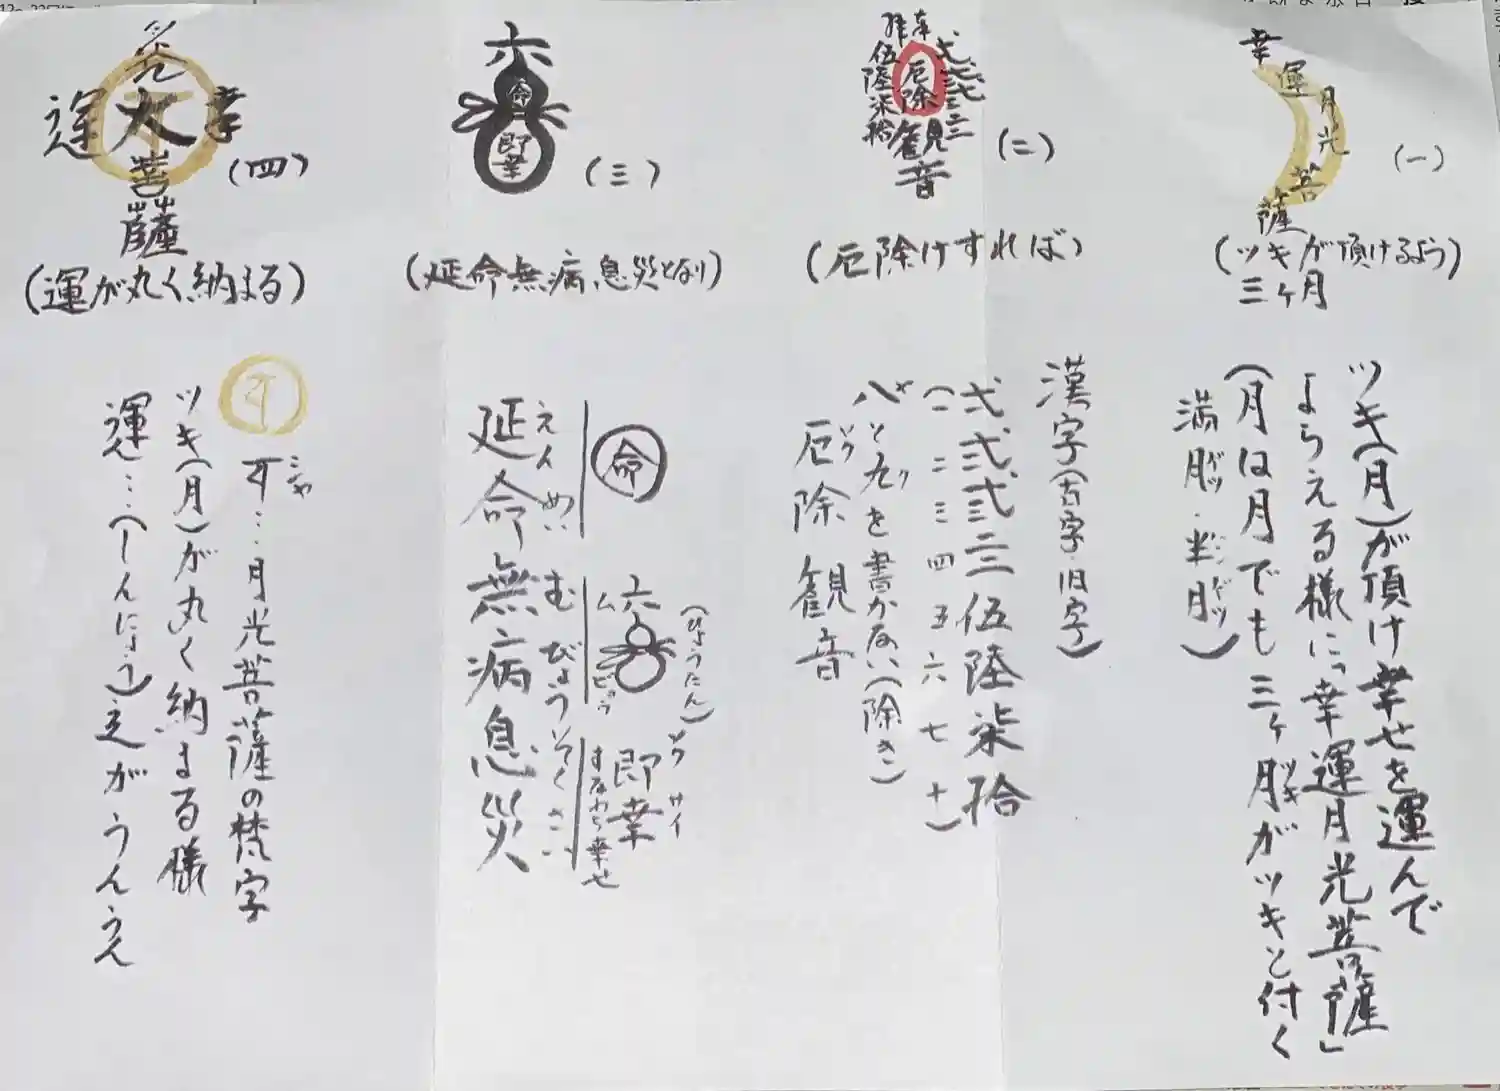 幸運月光菩薩
(一)
(ツキが頂けるよう)
三ヶ月
ツキ(月)が頂け幸せを運んで
もらえる様に「幸運月光菩薩」
(月は月でも三ヶ月がツキと付く
弐弐弐三
伍陸柒拾
厄除
観音
(二)
(厄除けすれば)
漢字(古字・旧字)
弌弐弐三伍陸柒拾
(一二三四五六七十)
八と九を書かない(除き)
ヤク
厄除観音
六
命
即幸
(三)
(延命無病息災となり)
命
六
(ひょうたん)
ム
ビョウ
ソク
サイ
即幸
すなわち幸せ
えんめい むびょうそくさい
延命無病息災
光
幸
大
運
菩
薩
(四)
(運が丸く納まる)
シャ
…月光菩薩の梵字
ツキ(月)が丸く納まる様
運…(しんにょう)之がうんうん